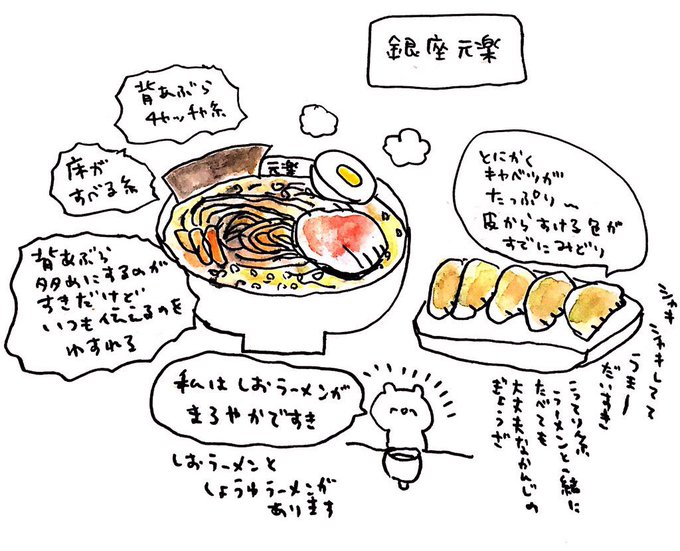 銀座元楽
背あぶら
チャッチャ系
床が
すべる系
背あぶら
多めにするのが
すきだけど
いつも伝えるのを
わすれる
元楽
とにかく
キャベツが
たっぷり〜
皮からすける色が
すでにみどり
シャキ
シャキしてて
うまー
だいすき
こってり系
ラーメンと一緒に
たべても
大丈夫なかんじの
ぎょうざ
私はしおラーメンが
まろやかですき
しおラーメンと
しょうゆラーメンが
あります